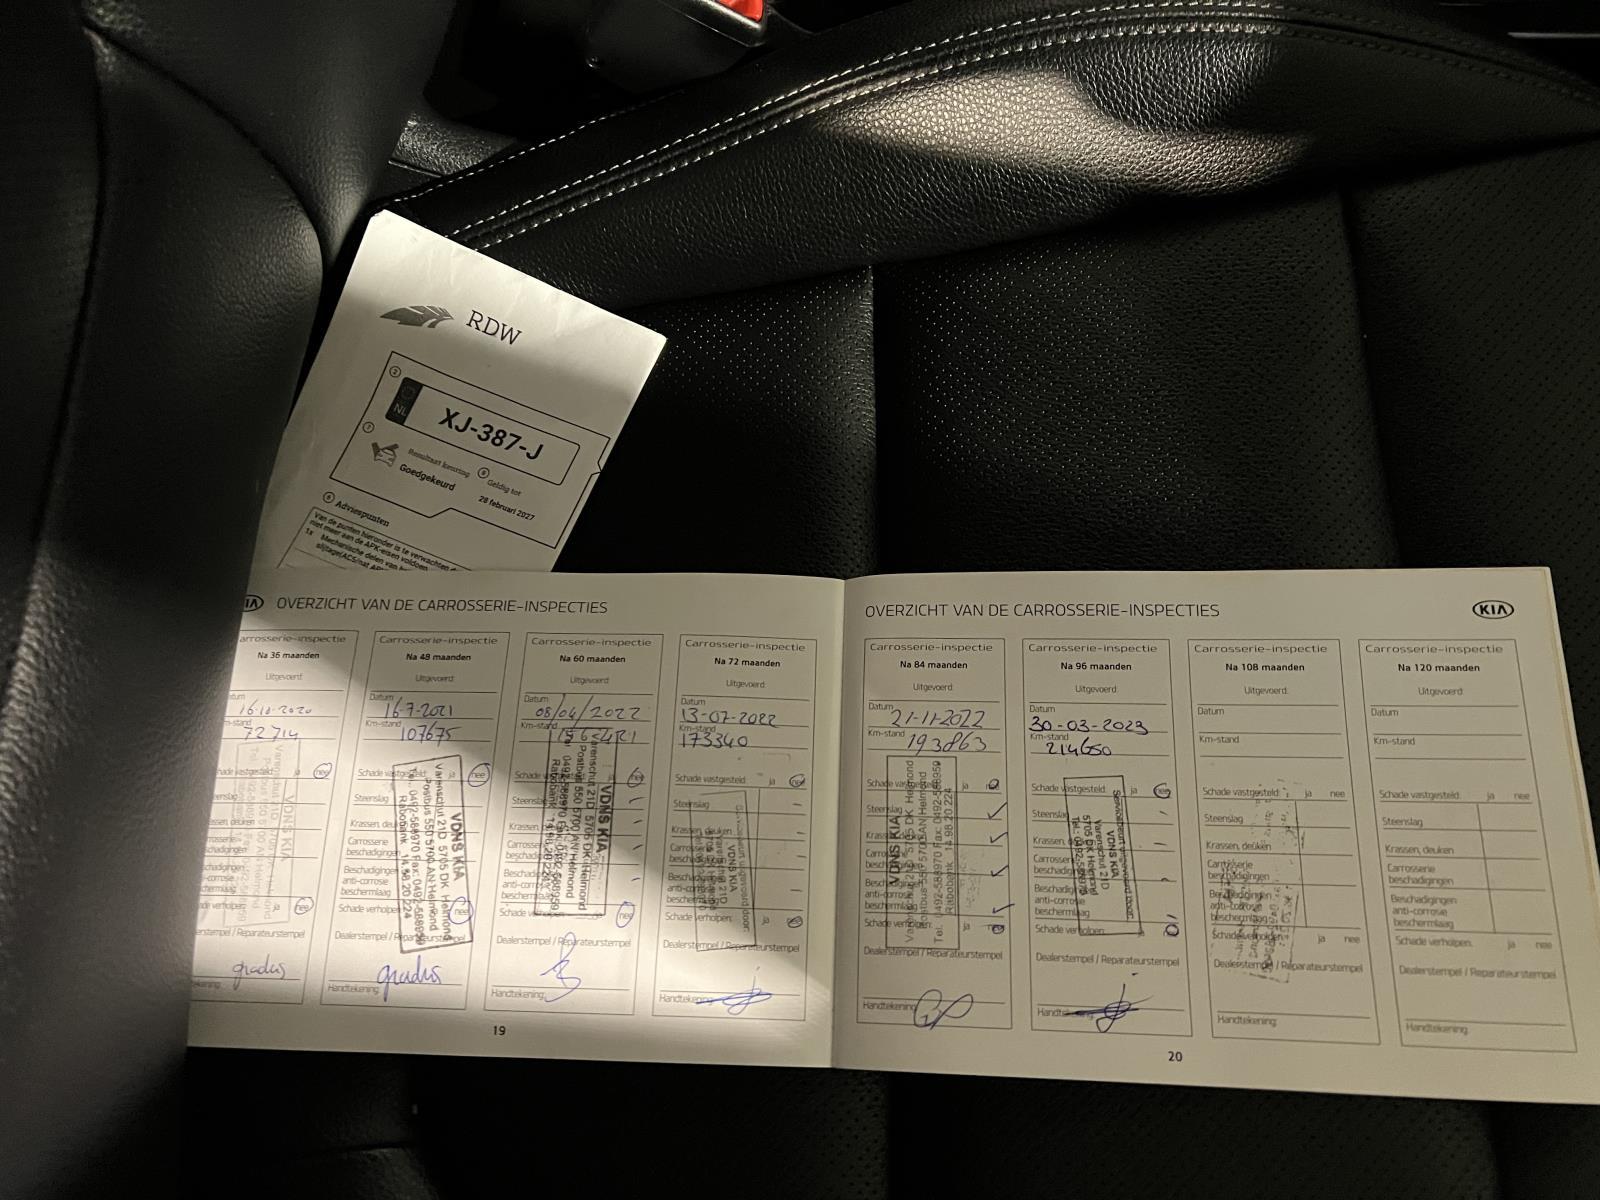 RDW
2
NL
XJ-387-J
7
Resultaat keuring
Goedgekeurd
8
Geldig tot
28 februari 2027
Adviespunten
Van de punten hieronder is te verwachten
niet meer aan de APK-eisen voldoen
1x Mechanische delen van
KIA OVERZICHT VAN DE CARROSSERIE-INSPECTIES
arrosserie-inspectie
Na 36 maanden
Uitgevoerd:
tum
16-10-2020
m-stand
72714
hade vastgesteld: nee
VDNS KIA
erstempel / Reparateurstempel
gradus
Carrosserie-inspectie
Na 48 maanden
Uitgevoerd:
Datum
16-7-2021
Km-stand
107675
Schade vastgesteld: ja nee
Steenslag
Krassen, deuken
Carrosserie
beschadigingen
Beschadigingen
anti-corrosie
beschermlaag
Schade verholpen: nee
VDNS KIA
Varenschut 21D 5705 DK Helmond
Postbus 550 5700 AN Helmond
Tel: 0492-588970 Fax: 0492-588959
Rabobank 14.98.20.224
Dealerstempel / Reparateurstempel
gradus
Handtekening:
Carrosserie-inspectie
Na 60 maanden
Uitgevoerd:
Datum
08/04/2022
Km-stand
Schade vastgesteld:
Steenslag
Krassen, deuken
Carrosserie
beschadigingen
Beschadigingen
anti-corrosie
beschermlaag
Schade verholpen: nee
VDNS KIA
Varenschut 21D 5705 DK Helmond
Postbus 550 5700 AN Helmond
Dealerstempel / Reparateurstempel
Handtekening:
Carrosserie-inspectie
Na 72 maanden
Uitgevoerd:
Datum
13-07-2022
Km-stand
173340
Schade vastgesteld: ja nee
Steenslag
Krassen, deuken
Carrosserie
beschadigingen
Beschadigingen
anti-corrosie
beschermlaag
Schade verholpen: ja nee
VDNS KIA
Dealerstempel / Reparateurstempel
Handtekening:
19
OVERZICHT VAN DE CARROSSERIE-INSPECTIES KIA
Carrosserie-inspectie
Na 84 maanden
Uitgevoerd:
Datum
21-11-2022
Km-stand
193863
Schade vastgesteld: ja
Steenslag
Schade verholpen: ja
VDNS KIA
Varenschut 21D 5705 DK Helmond
Postbus 550 5700 AN Helmond
Tel. 0492-588970 Fax: 0492-588959
Rabobank 14.98.20.224
Dealerstempel / Reparateurstempel
Handtekening:
Carrosserie-inspectie
Na 96 maanden
Uitgevoerd:
Datum
30-03-2023
Km-stand
214650
Schade vastgesteld: ja
Steenslag
Schade verholpen: ja
ServiceBeurt uitgevoerd door:
VDNS KIA
Varenschut 21D
5705 DK Helmond
Tel.: 0492-588970
Dealerstempel / Reparateurstempel
Handtekening:
Carrosserie-inspectie
Na 108 maanden
Uitgevoerd:
Datum
Km-stand
Schade vastgesteld: ja nee
Steenslag
Krassen, deuken
Carrosserie
beschadigingen
Beschadigingen
anti-corrosie
beschermlaag
Schade verholpen: ja nee
Dealerstempel / Reparateurstempel
Handtekening:
Carrosserie-inspectie
Na 120 maanden
Uitgevoerd:
Datum
Km-stand
Schade vastgesteld: ja nee
Steenslag
Krassen, deuken
Carrosserie
beschadigingen
Beschadigingen
anti-corrosie
beschermlaag
Schade verholpen: ja nee
Dealerstempel / Reparateurstempel
Handtekening:
20